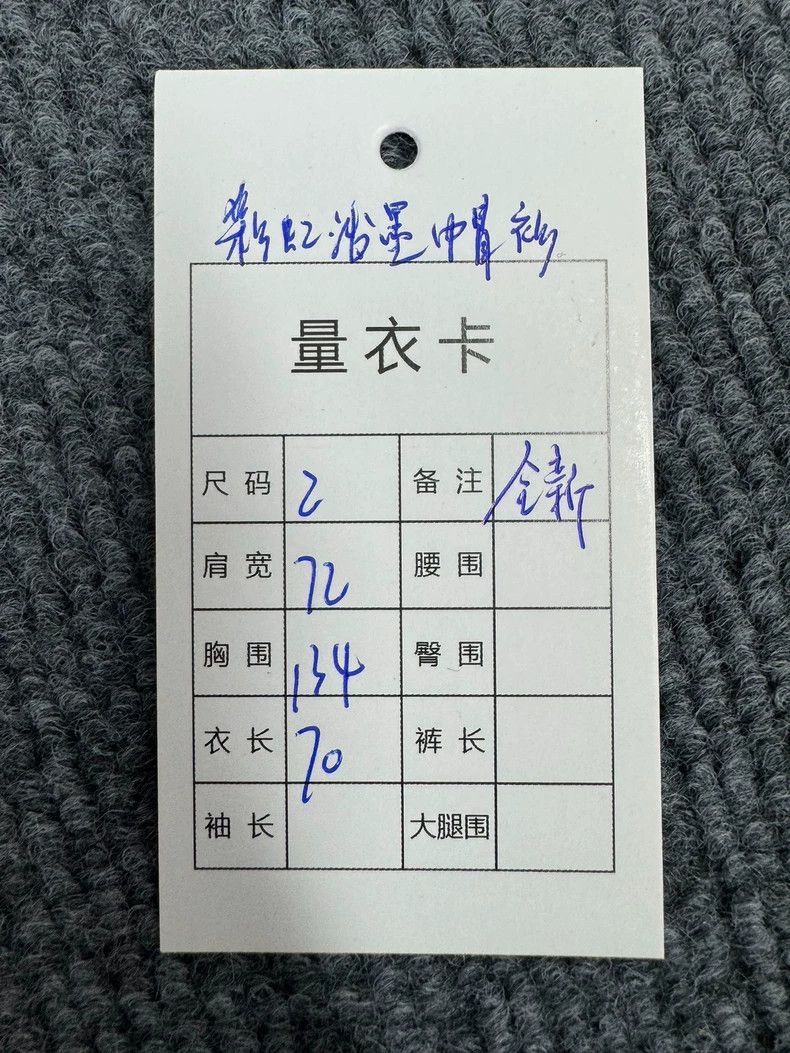 彩虹泼墨中骨衫
量衣卡
尺码 2 备注 全新
肩宽 72 腰围
胸围 134 臀围
衣长 70 裤长
袖长 大腿围